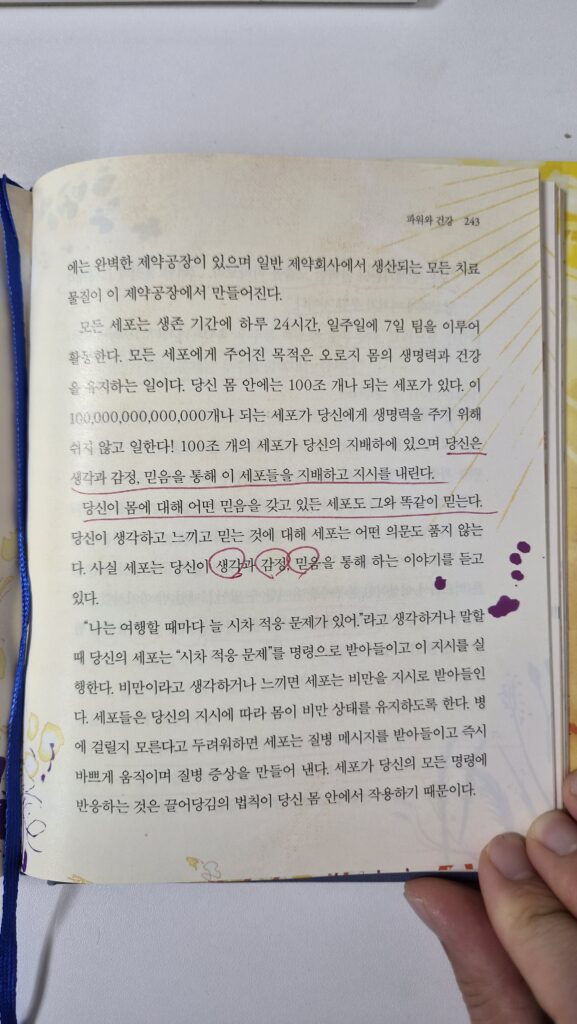 파워와 건강 243
에는 완벽한 제약공장이 있으며 일반 제약회사에서 생산되는 모든 치료
물질이 이 제약공장에서 만들어진다.
모든 세포는 생존 기간에 하루 24시간, 일주일에 7일 팀을 이루어
활동한다. 모든 세포에게 주어진 목적은 오로지 몸의 생명력과 건강
을 유지하는 일이다. 당신 몸 안에는 100조 개나 되는 세포가 있다. 이
100,000,000,000,000개나 되는 세포가 당신에게 생명력을 주기 위해
쉬지 않고 일한다! 100조 개의 세포가 당신의 지배하에 있으며 당신은
생각과 감정, 믿음을 통해 이 세포들을 지배하고 지시를 내린다.
당신이 몸에 대해 어떤 믿음을 갖고 있든 세포도 그와 똑같이 믿는다.
당신이 생각하고 느끼고 믿는 것에 대해 세포는 어떤 의문도 품지 않는
다. 사실 세포는 당신이 생각과 감정, 믿음을 통해 하는 이야기를 듣고
있다.
“나는 여행할 때마다 늘 시차 적응 문제가 있어.”라고 생각하거나 말할
때 당신의 세포는 “시차 적응 문제”를 명령으로 받아들이고 이 지시를 실
행한다. 비만이라고 생각하거나 느끼면 세포는 비만을 지시로 받아들인
다. 세포들은 당신의 지시에 따라 몸이 비만 상태를 유지하도록 한다. 병
에 걸릴지 모른다고 두려워하면 세포는 질병 메시지를 받아들이고 즉시
바쁘게 움직이며 질병 증상을 만들어 낸다. 세포가 당신의 모든 명령에
반응하는 것은 끌어당김의 법칙이 당신 몸 안에서 작용하기 때문이다.